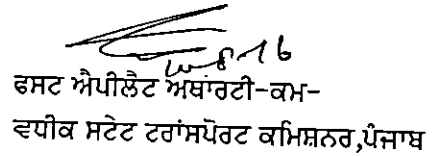 ਫਸਟ ਐਪੀਲੈਟ ਅਥਾਂਰਟੀ-ਕਮ-
ਵਧੀਕ ਸਟੇਟ ਟਰਾਂਸਪੋਰਟ ਕਮਿਸ਼ਨਰ,ਪੰਜਾਬ